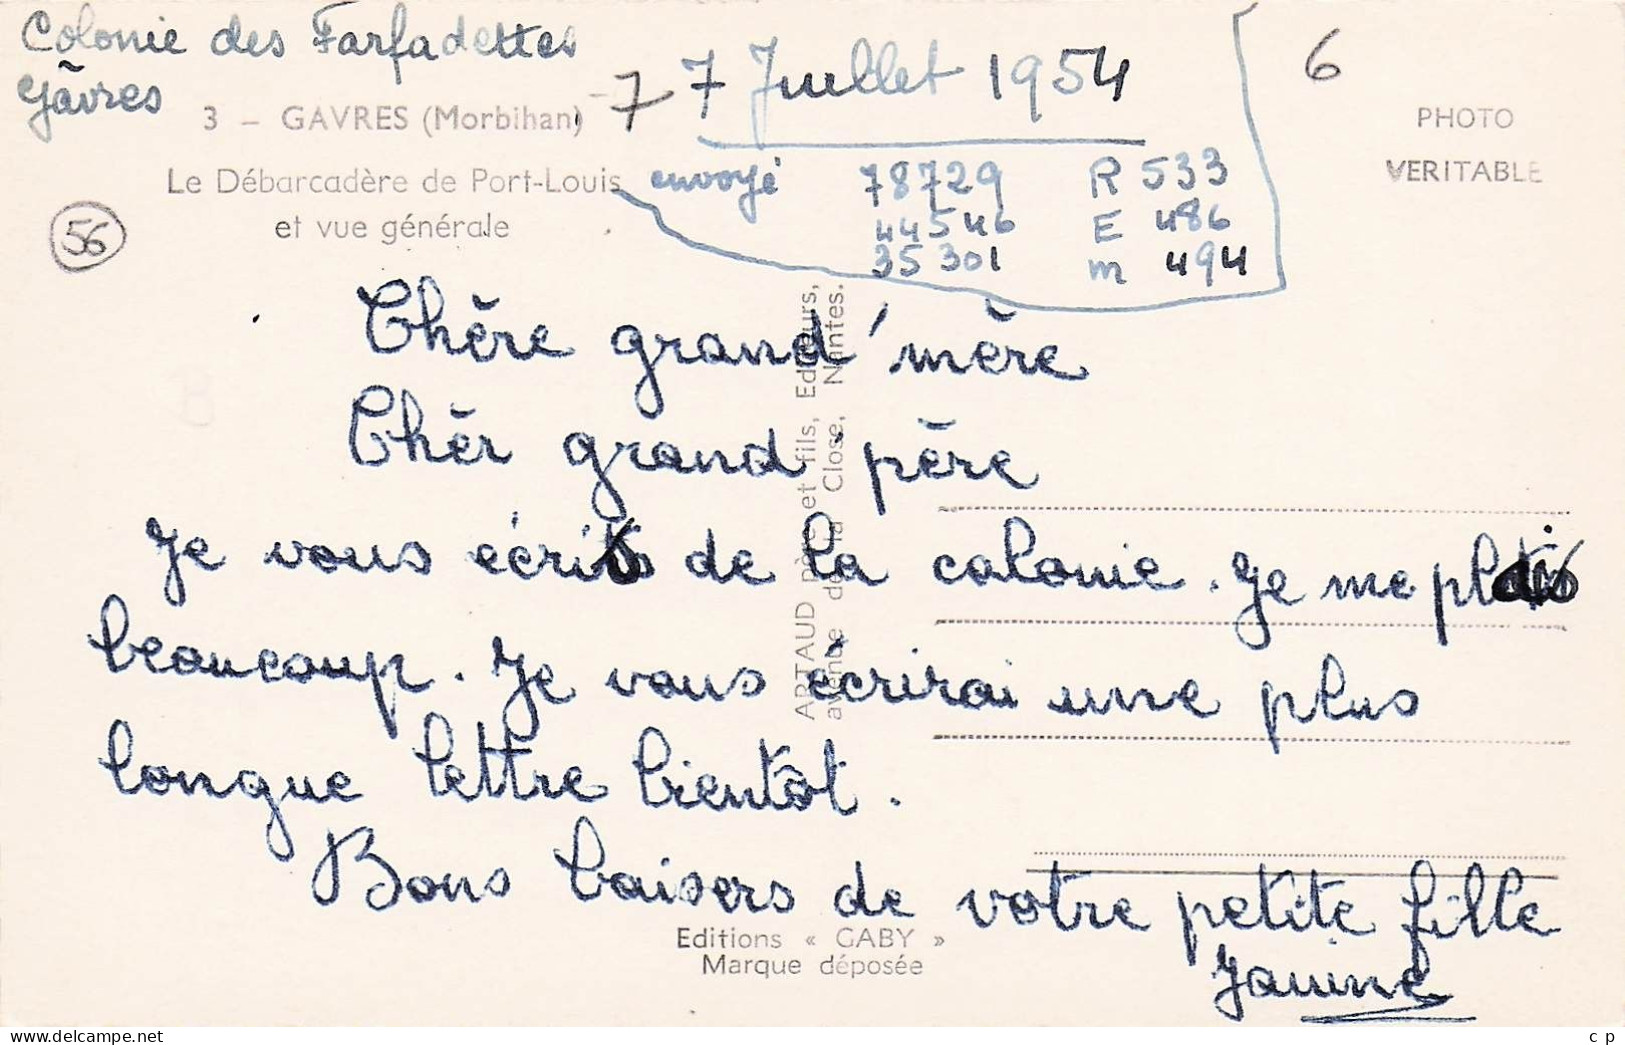 Colonie des Farfadettes
Gâvres
7 7 Juillet 1954
6
3 - GAVRES (Morbihan)
Le Débarcadère de Port-Louis
et vue générale
PHOTO
VERITABLE
envoyé 78729 R 533
44546 E 486
35301 m 494
56
Chère grand'mère
Chèr grand père
Je vous écris de la colonie. Je me plais
beaucoup. Je vous écrirai une plus
longue lettre bientôt.
Bons baisers de votre petite fille
Janine
ARTAUD père et fils, Editeurs,
avenue de la Close, Nantes.
Editions « GABY »
Marque déposée
delcampe.net
c p